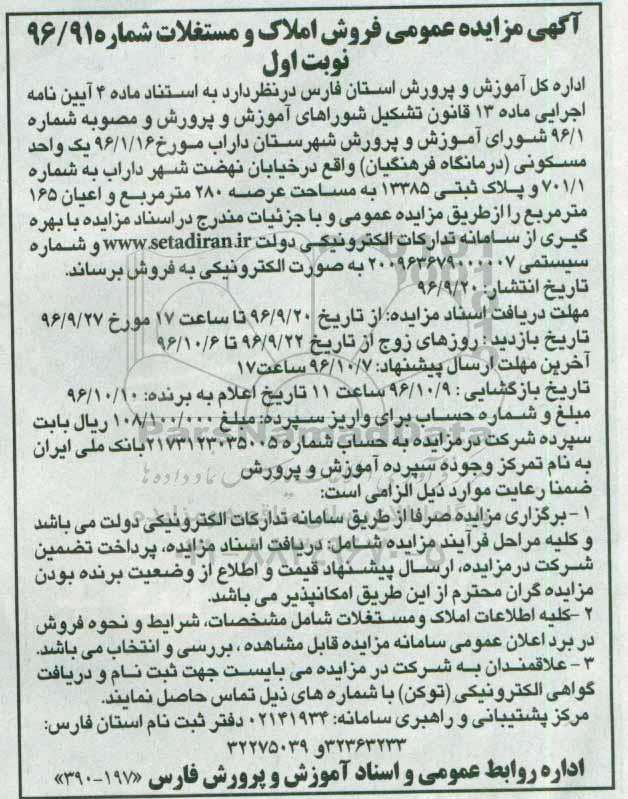 آگهی مزایده عمومی فروش املاک و مستغلات شماره ۹۶/۹۱
نوبت اول
اداره کل آموزش و پرورش استان فارس درنظردارد به استناد ماده ۴ آیین نامه
اجرایی ماده ۱۳ قانون تشکیل شوراهای آموزش و پرورش و مصوبه شماره
۹۶/۱ شورای آموزش و پرورش شهرستان داراب مورخ ۹۶/۱/۱۶ یک واحد
مسکونی (درمانگاه فرهنگیان) واقع درخیابان نهضت شهر داراب به شماره
۷۰۱/۱ و پلاک ثبتی ۱۳۳۸۵ به مساحت عرصه ۲۸۰ مترمربع و اعیان ۱۶۵
مترمربع را ازطریق مزایده عمومی و با جزئیات مندرج دراسناد مزایده با بهره
گیری از سامانه تدارکات الکترونیکی دولت www.setadiran.ir و شماره
سیستمی ۲۰۰۹۶۳۶۷۹۰۰۰۰۰۷ به صورت الکترونیکی به فروش برساند.
تاریخ انتشار: ۹۶/۹/۲۰
مهلت دریافت اسناد مزایده: از تاریخ ۹۶/۹/۲۰ تا ساعت ۱۷ مورخ ۹۶/۹/۲۷
تاریخ بازدید : روزهای زوج از تاریخ ۹۶/۹/۲۲ تا ۹۶/۱۰/۶
آخرین مهلت ارسال پیشنهاد: ۹۶/۱۰/۷ ساعت۱۷
تاریخ بازگشایی : ۹۶/۱۰/۹ ساعت ۱۱ تاریخ اعلام به برنده: ۹۶/۱۰/۱۰
مبلغ و شماره حساب برای واریز سپرده: مبلغ ۱۰۸/۱۰۰/۰۰۰ ریال بابت
سپرده شرکت در مزایده به حساب شماره ۲۱۷۳۱۲۳۰۳۵۰۰۵ بانک ملی ایران
به نام تمرکز وجوده سپرده آموزش و پرورش
ضمنا رعایت موارد ذیل الزامی است:
۱ - برگزاری مزایده صرفا از طریق سامانه تدارکات الکترونیکی دولت می باشد
و کلیه مراحل فرآیند مزایده شامل: دریافت اسناد مزایده، پرداخت تضمین
شرکت درمزایده، ارسال پیشنهاد قیمت و اطلاع از وضعیت برنده بودن
مزایده گران محترم از این طریق امکانپذیر می باشد.
۲ -کلیه اطلاعات املاک ومستغلات شامل مشخصات، شرایط و نحوه فروش
در برد اعلان عمومی سامانه مزایده قابل مشاهده ، بررسی و انتخاب می باشد.
۳ - علاقمندان به شرکت در مزایده می بایست جهت ثبت نام و دریافت
گواهی الکترونیکی (توکن) با شماره های ذیل تماس حاصل نمایند.
مرکز پشتیبانی و راهبری سامانه: ۰۲۱۴۱۹۳۴ دفتر ثبت نام استان فارس:
۳۲۳۶۳۲۳۳ و ۳۲۲۷۵۰۳۹
اداره روابط عمومی و اسناد آموزش و پرورش فارس «۱۹۷-۳۹۰»